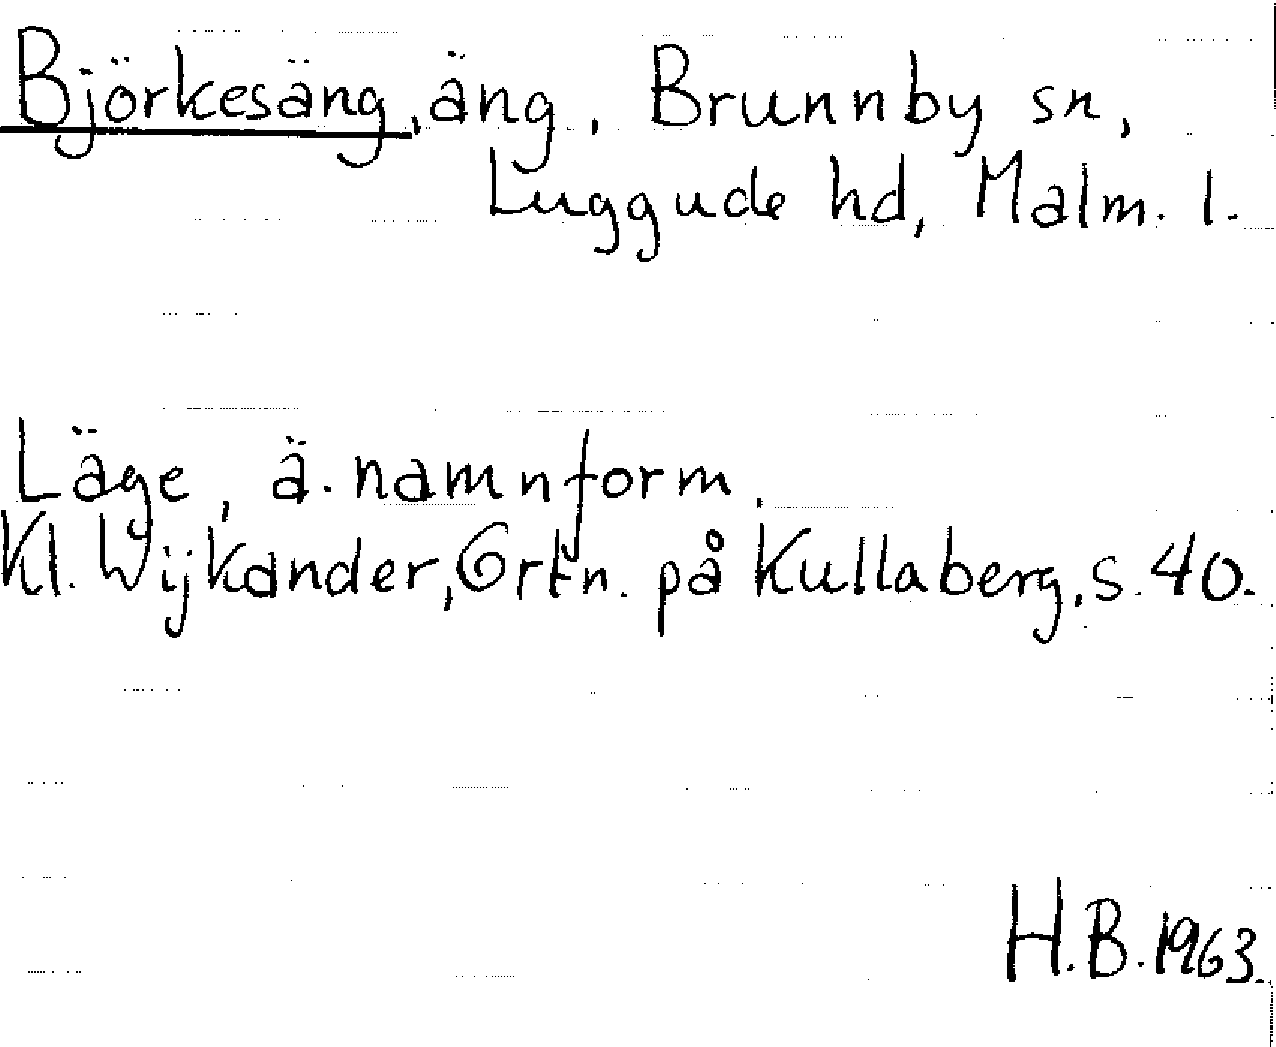 Björkesäng, äng, Brunnby sn,
Luggude hd, Malm. l.
Läge, ä. namnform.
Kl. Wijkander, Ortn. på Kullaberg, s. 40.
H.B. 1963.